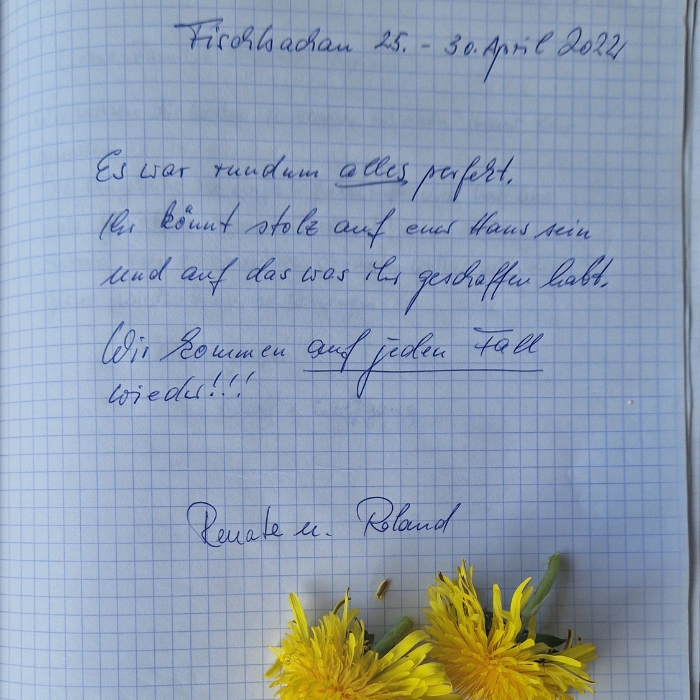 Fischbachau 25. - 30. April 2022
Es war rundum alles perfekt.
Ihr könnt stolz auf euer Haus sein
und auf das was ihr geschaffen habt.
Wir kommen auf jeden Fall
wieder!!!
Renate u. Roland